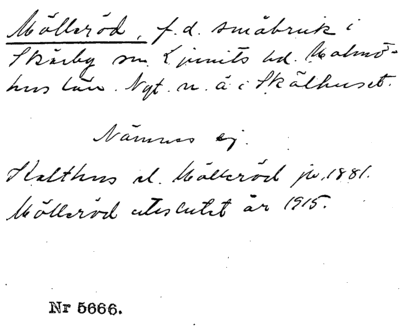 Mölleröd, f.d. småbruk i
Skårby sn. Ljunits hd. Malmö-
hus län. Ngt. n. å i Skålhuset.
Nämnes ej.
Skälthus el. Mölleröd jw. 1881.
Mölleröd uteslutet år 1915.
Nr 5666.